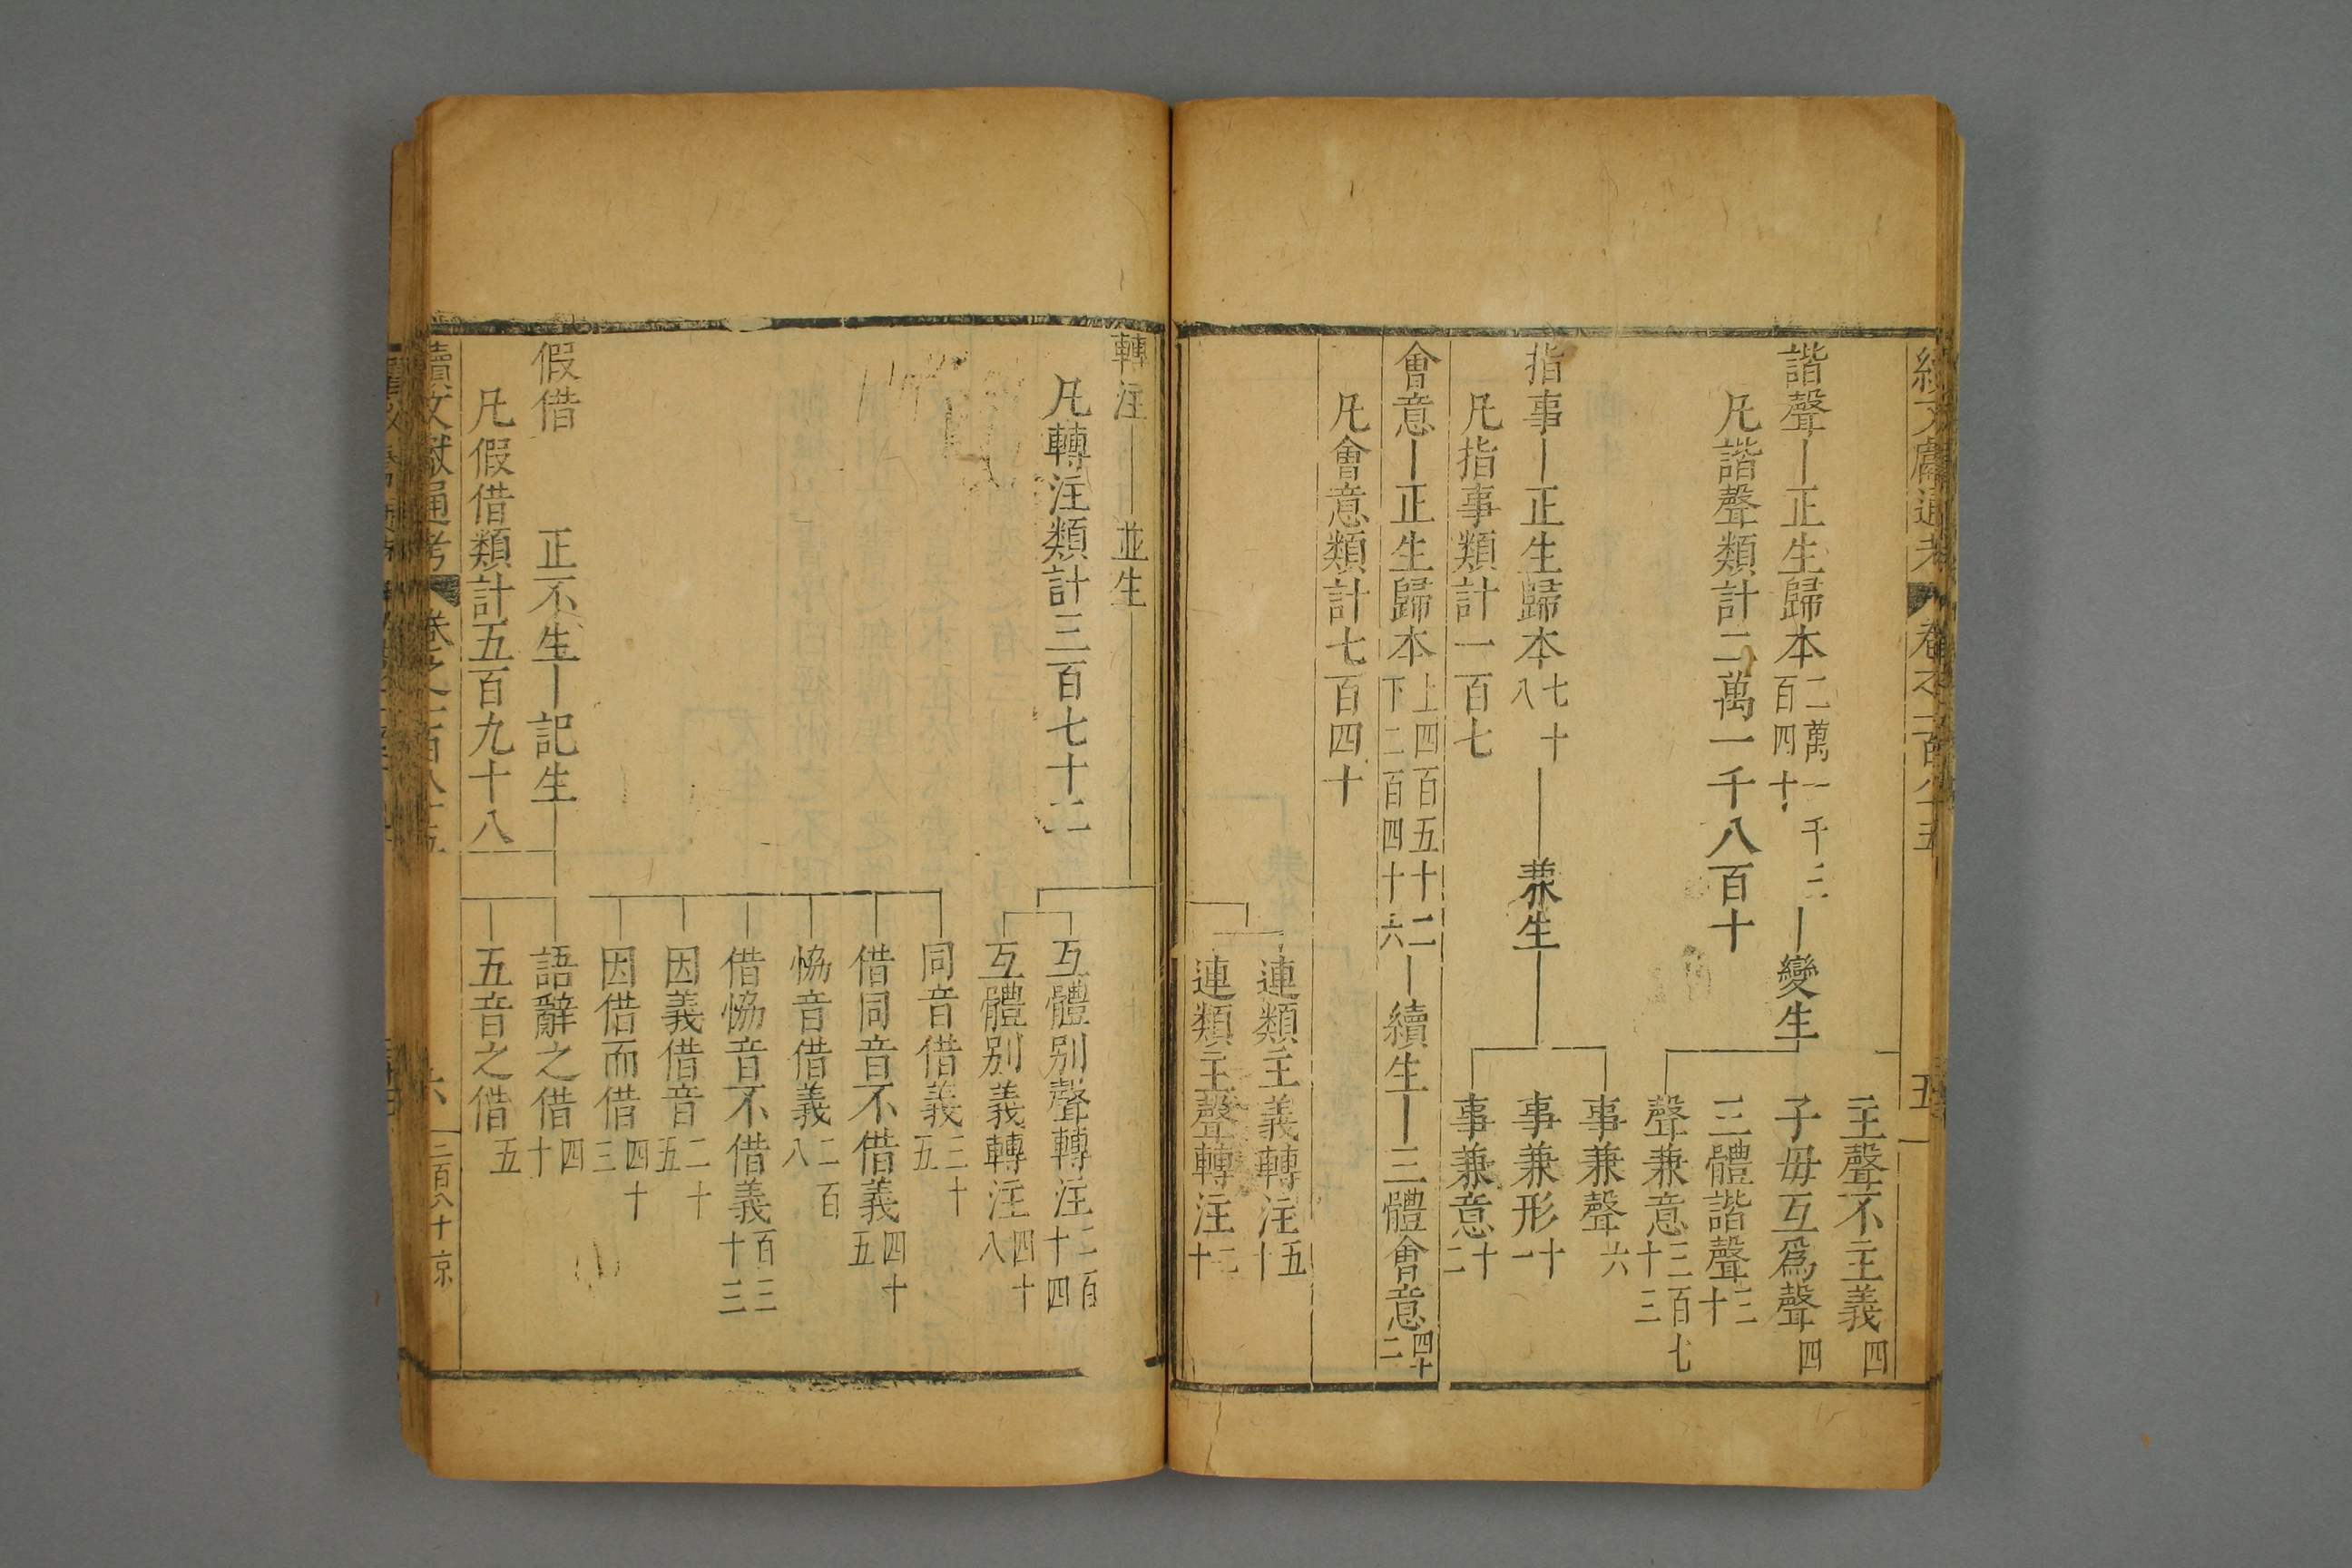 續文獻通考 卷之一百八十五 五
主聲不主義四
諧聲 正生歸本二萬一千三百四十 變生 子母互爲聲四
凡諧聲類計二萬一千八百十 三體諧聲三十
聲兼意三百七十三
事兼聲六
指事 正生歸本七十八 兼生 事兼形十一
凡指事類計一百七 事兼意十二
會意 正生歸本上四百五十二下二百四十六 續生 三體會意四十二
凡會意類計七百四十
連類主義轉注五十
連類主聲轉注二十
轉注 並生
凡轉注類計三百七十二 互體別聲轉注二百十四
互體別義轉注四十八
同音借義三十五
借同音不借義四十五
恊音借義二百八
借恊音不借義百三十三
因義借音二十五
因借而借四十三
假借 正不生 記生 語辭之借四十
凡假借類計五百九十八 五音之借五
續文獻通考 卷之一百八十五 六 二百八十 京